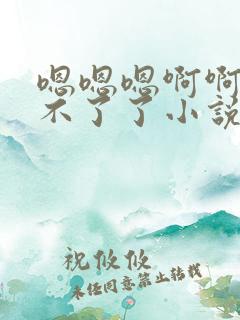 嗯嗯嗯啊啊
不了了小说
祝攸攸
未经同意禁止转载